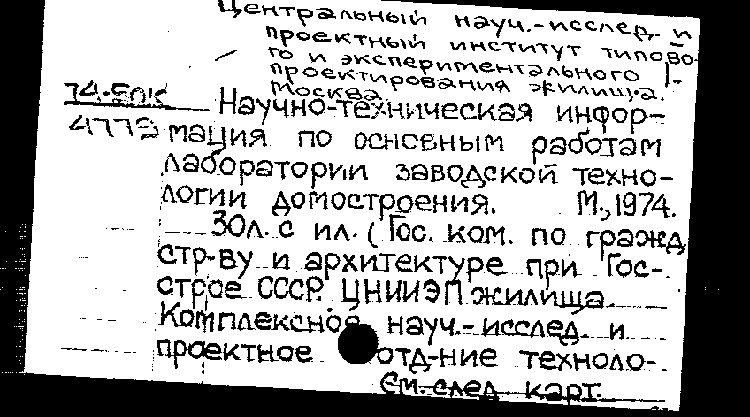 Центральный науч.-исслед. и
проектный институт типово-
го и экспериментального
проектирования жилища.
Москва
74-50К Научно-техническая инфор-
4779 мация по основным работам
лаборатории заводской техно-
логии домостроения. М., 1974.
30л. с ил. (Гос. ком. по гражд
стр-ву и архитектуре при Гос-
строе СССР. ЦНИИЭП жилища.
Комплексное науч.-исслед. и
проектное отд-ние техноло-
См. след карт.